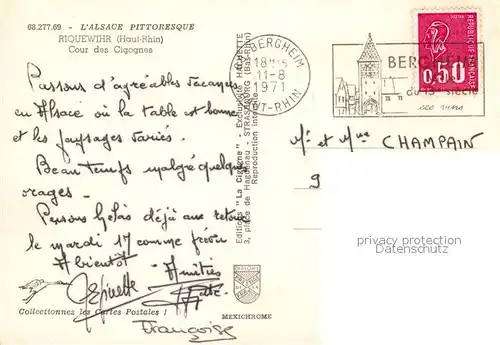 68.277.69 - L'ALSACE PITTORESQUE
RIQUEWIHR (Haut-Rhin)
Cour des Cigognes
Passons d'agréables vacances
en Alsace où la table est bonne
et les paysages variés.
Beau temps malgré quelques
orages.
Pensons hélas déjà au retour
le mardi 17 comme prévu
A bientôt
Amitiés
Françoise
Collectionnez les Cartes Postales !
MEXICHROME
Editions "La Cigogne" - Exclusivité HACHETTE
3, place de Haguenau - STRASBOURG (Bas-Rhin)
Reproduction interdite
BERGHEIM
18H15
11-8
1971
HT-RHIN
BERGHEIM
du 13e siècle
ses vins
REPUBLIQUE FRANÇAISE
0,50
Mr et Mme CHAMPAIN
9
www.ansichtskarten-center.de